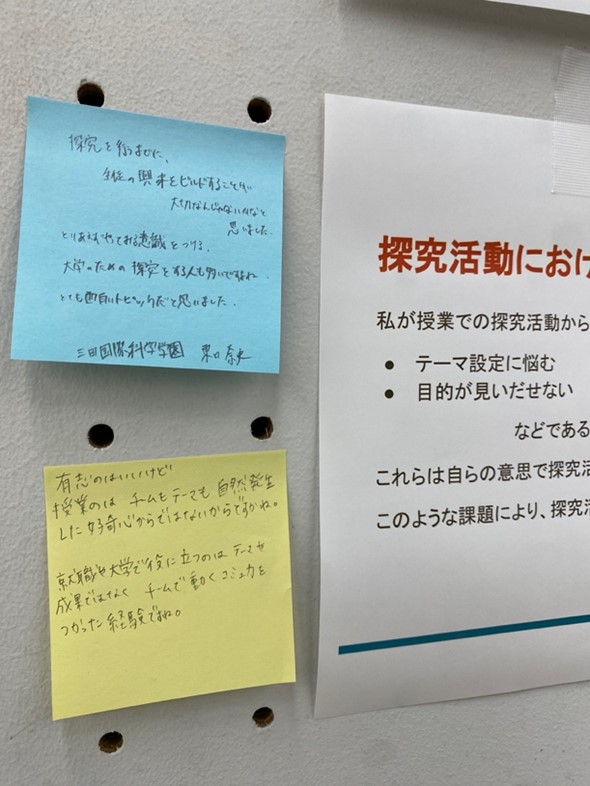 探究を行うまでに、
生徒の興味をビルドすることが
大切なんじゃないかなと
思いました。
とりあえずやってる意識をつける。
大学のための探究をする人も多いですよね。
とても面白いトピックだと思いました。
三田国際科学学園
有志のはいいけど
授業のは チームもテーマも 自然発生
した好奇心からではないからですかね。
就職や大学で役に立つのは テーマや
成果ではなく チームで動くコミュ力を
つかった経験ですね。
探究活動におけ
私が授業での探究活動から
● テーマ設定に悩む
● 目的が見いだせない
などである
これらは自らの意思で探究活
このような課題により、探究活